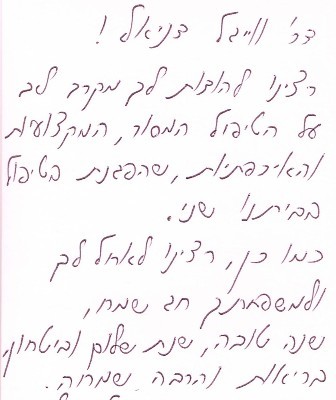 דר' ווייגל דניאל !
רצינו להודות לך מקרב לב
על הטיפול המסור, המקצועיות
והאיכפתיות, שהפגנת בטיפול
בביתנו שני.
כמו כן, רצינו לאחל לך
ולמשפחתך חג שמח,
שנה טובה, שנת שלום וביטחון,
בריאות והרבה שמחה.